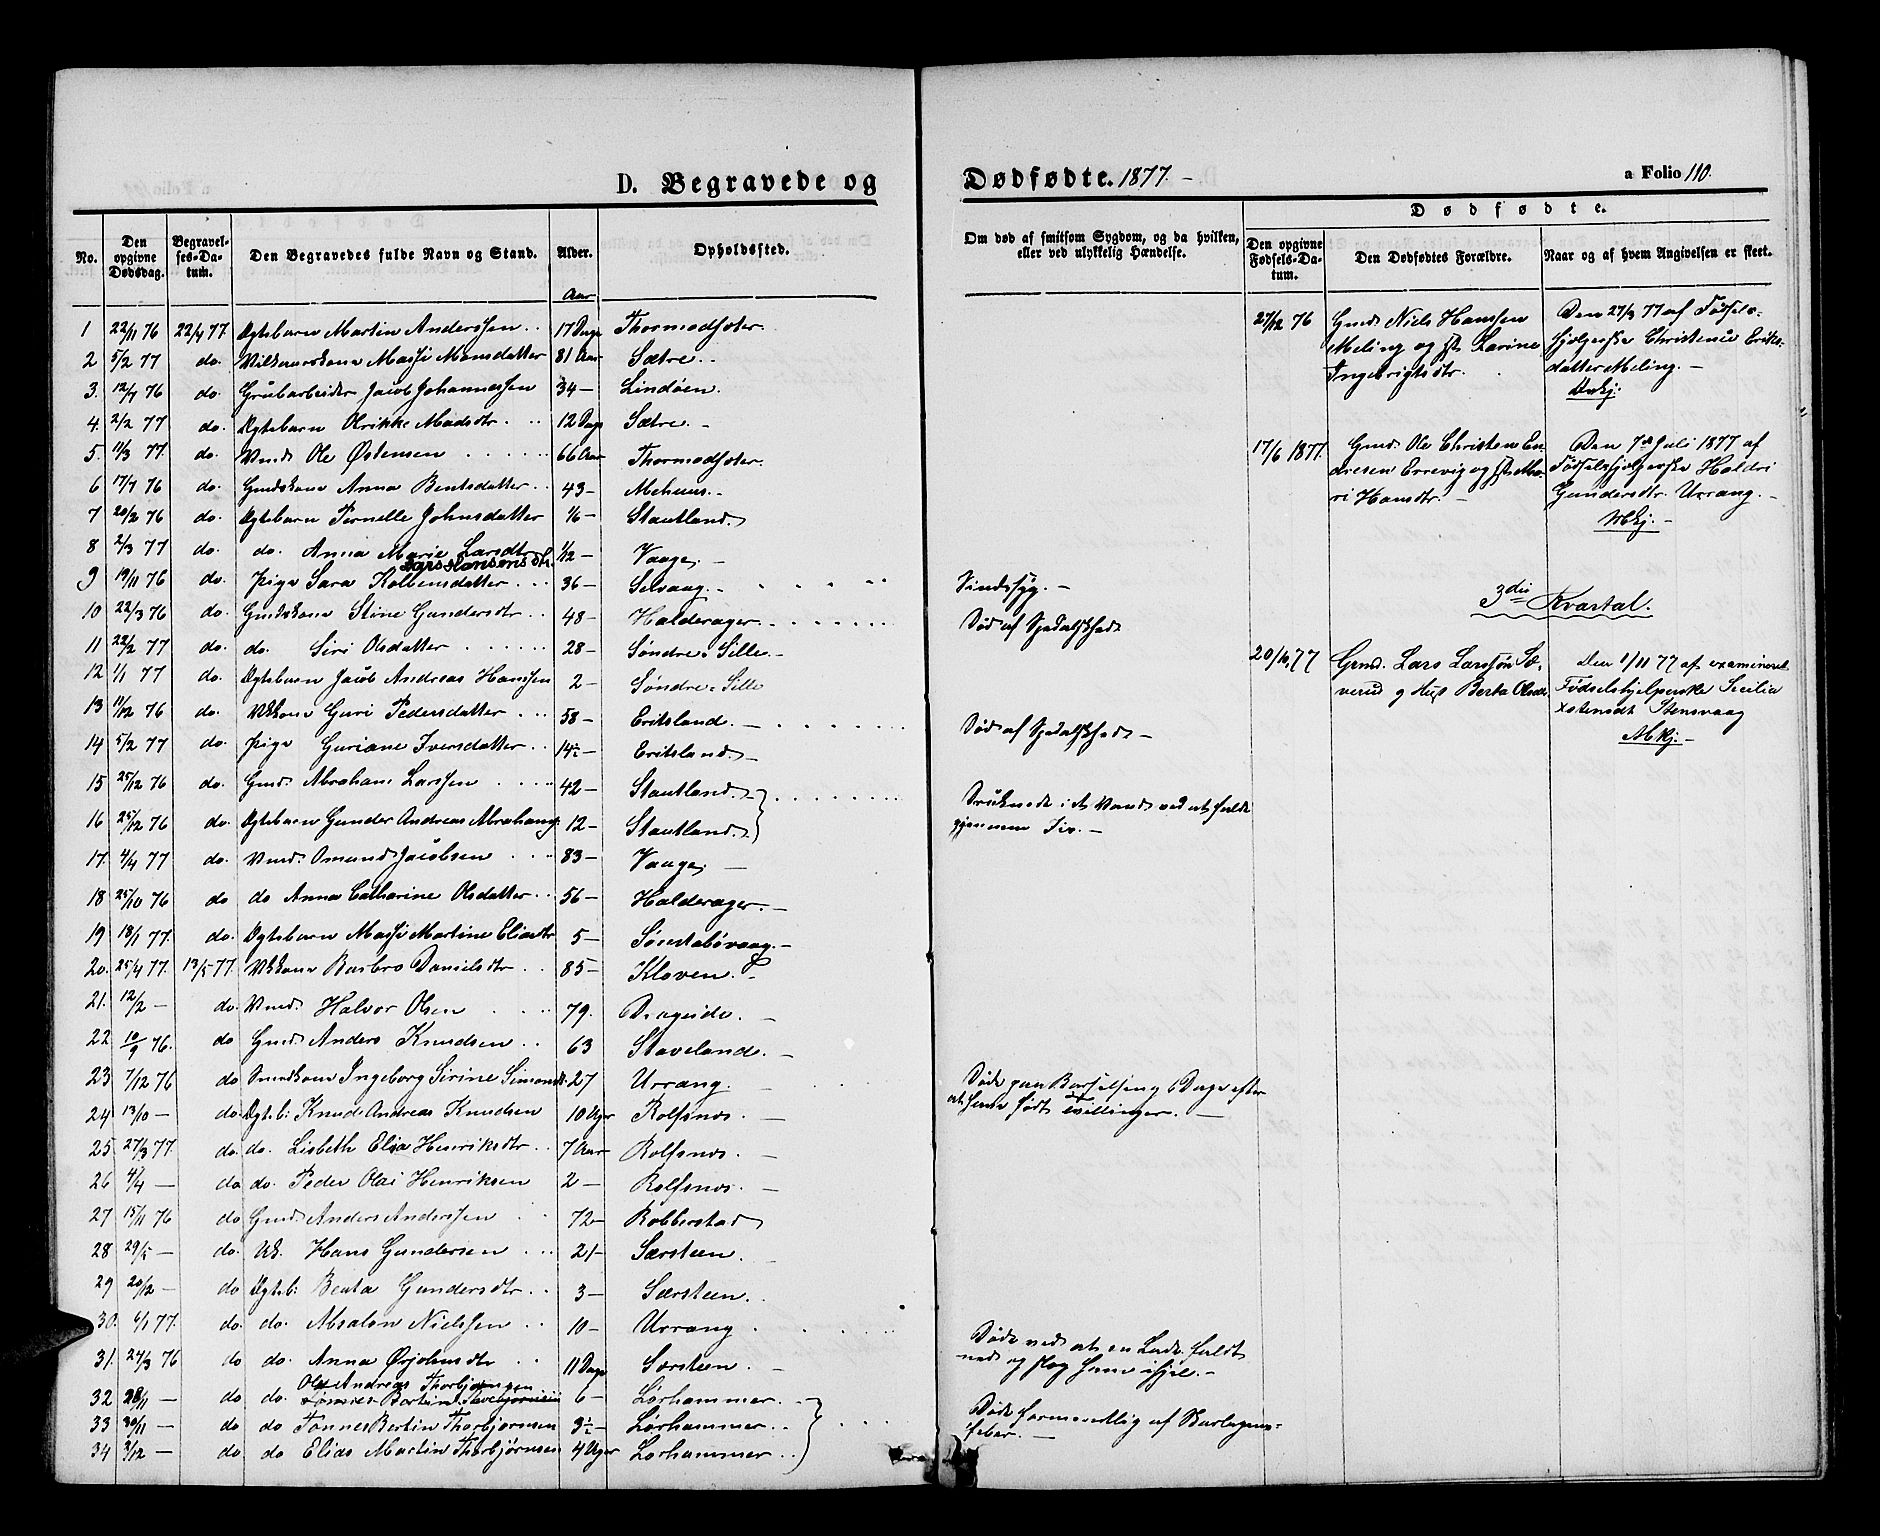 D. Begravede og
Dødfødte. 1877. -
a Folio 110.
No.
Den opgivne Dødsdag.
Begravelses-Datum.
Den Begravedes fulde Navn og Stand.
Alder.
Opholdssted.
Om død af smitsom Sygdom, og da hvilken, eller ved ulykkelig Hændelse.
Dødfødte.
Den opgivne Fødsels-Datum.
Den Dødfødtes Forældre.
Naar og af hvem Angivelsen er skeet.
Aar
1 22/11 76 22/4 77. Ægtebarn Martin Anderssen 17 Dage Thormodsæter.
2 5/2 77 do. Massi Monsdatter 81 Aar Sætre.
3. 12/7 76 do. Grubarbeider Jacob Johannessen 34 - Lindøen.
4. 2/2 77 do. Ægtebarn Olrikke Madsdtr 12 Dage Sætre. -
5. 11/3 77. do. Ole Østensen 66 Aar Thormodsæter.
6 17/7 76 do. Gmdskone Anna Bentsdatter 43 - Mehuus. -
7 20/2 76 do. Ægtebarn Pernelle Johnsdatter 1/6 - Stautland.
8 2/3 77 do. do. Anna Marie Larsdtr 1/12 - Vaage. -
9 19/11 76 do. Pige Sara Kolbensdatter 36 - Selvaag. - Sindssyg. -
10 22/3 76 do. Gmdskone Stine Gundersdtr 48 - Halderager Død af Spedalskhed
11 22/2 77 do. do. Siri Olsdatter 28 - Søndre Sille. -
12 1/1 77 do. Ægtebarn Jacob Andreas Hanssen 2 - Søndre Sille
13 11/12 76 do. Guri Pedersdatter 58 - Eritsland. - Død af Spedalskhed -
14 5/2 77 do. Pige Guriane Iversdatter 14½ - Eritsland. -
15 25/12 76 do. Gmd. Abraham Larssen 42 - Stautland. Druknede i et Vand ved at falde
16 25/12 76 do. Ægtebarn Gunder Andreas Abrahams 12 - Stautland. gjennem Isen. -
17. 4/4 77 do. Omund Jacobsen 83 - Vaage. -
18 25/10 76 do do Anna Catharine Olsdatter 56 - Halderager. -
19 18/1 77. do. Ægtebarn Massi Martine Eliasdtr 5 - Sønstabøvaag. -
20. 25/4 77. 13/5 77. Barbro Danielsdtr 85 - Kloven.
21. 12/2 - do. Halvor Olsen 79. Drageide. -
22 10/9 76. do Gmd. Anders Knudsen 63 Staveland. -
23 7/12 76 do Ingeborg Sirine Simonsdtr. 27 Urrang. Døde paa Barselseng 6 Dage efter
at have født tvillinger. -
24 13/10 - do. Ægteb: Knud Andreas Knudsen 10 Uger Rolfsnes. -
25 27/3 77. do. do. Lisbeth Elsa Henriksdtr 7 Aar Rolfsnes. -
26 4/4 - do do. Peder Olai Henriksen 2 - Rolfsnes. -
27 15/11 76 do Gmd. Anders Anderssen 72 - Robberstad
28 29/5 - do. Uk. Hans Gundersen 21 - Særsteen.
29 20/12 - do Ægteb: Berta Gundersdtr 3 - Særsteen.
30. 6/1 77. do. do. Absalon Nielssen 10 - Urrang. Døde ved at en Lade faldt
ned og slog ham ihjel. -
31. 24/3 76 do do. Anna Ørjohnsdtr 11 Dage Særsteen. -
32 28/11 - do do. Ole Andreas Thorbjørnsen 6 - Lørhammer.
33 30/11 - do do Tønnes Bertin Thorbjørnsen 3½ - Lørhammer. Døde formentlig af Skarlagens-
34 3/12 - do do Elias Martin Thorbjørnsen 4 Uger Lørhammer feber. -
27/12 76 Gmd. Niels Hanssen
Meling og Lavine
Ingebrigtsdtr.
Den 27/3 77 af Fødsels-
hjælperske Christense Eriks-
datter Meling. -
17/6 1877. Gmd. Ole Christen En-
dresen Errevig og Ma-
ri Hansdtr. -
Den 7de Juli 1877 af
Fødselshjælperske Haldri
Gundersdtr. Urrang. -
3die Kvartal.
20/10 77 Grmd. Lars Larssøn Sæ-
verud og Berta Olsdtr
Den 1/11 77 af examineret
Fødselshjelperske Sicilia
Stensvaag